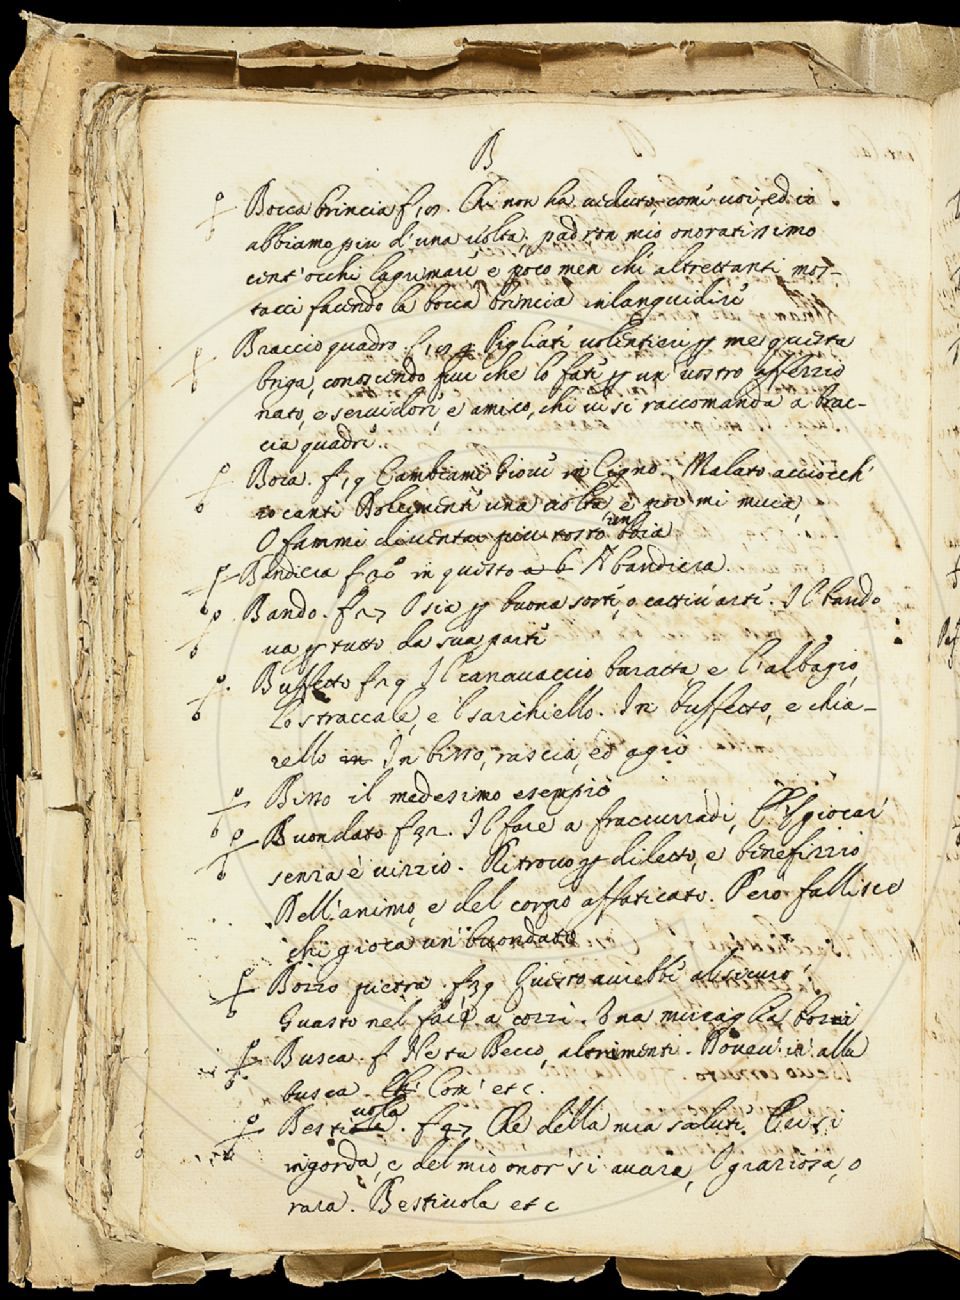 B
Bocca brincia f. 107. Chi non ha veduto, come voi, ed io
abbiamo piu d'una volta, padron mio onoratissimo
cent'occhi lagrimare e poco men che altrettanti mos-
tacci facendo la bocca brincia inlanguidire
Braccio quadro f. Pigliate volentieri per me questa
briga, conoscendo che lo fate per un vostro affezzio
nato, e servidore, e amico, che vi si raccomanda a brac-
cia quadre.
Boia. f. 19 Cambiami Giove in Cigno. Malato acciocch'
io canti Dolcemente una volta e poi mi muoia,
O fammi diventar piu tosto un boia
Bandiera f. 20 in questo a b A bandiera.
Bando. f. 27 O sia per buona sorte, o cattiv'arte. Il bando
va per tutto da sua parte
Buffetto f. 29 Il canavaccio baratta e l'albagio,
Lo straccale, e 'l sarchiello. In buffetto, e chia-
rello In bisso, rascia, ed agio
Bisso il medesimo esempio
Buondato f. 32. Il fare a fraccurradi, e 'l giocar
senza è vizzio. Ritrovo per diletto, e benefizzio
Dell'animo, e del corpo affaticato. Pero fallisce
chi gioca un buondato
Bozzo pietra. f. 39 Questo avrebbe al sicuro
Guasto nel fare a cozzi. Una muraglia bozzi
Busca. f Ne tu Becco, altrimenti. Dovevi ir alla
busca. Com' etc.
Bestivola. f. 47 Che della mia salute. Lei si
ingorda, e del mio onor si avara, O graziosa, o
rara. Bestivola etc